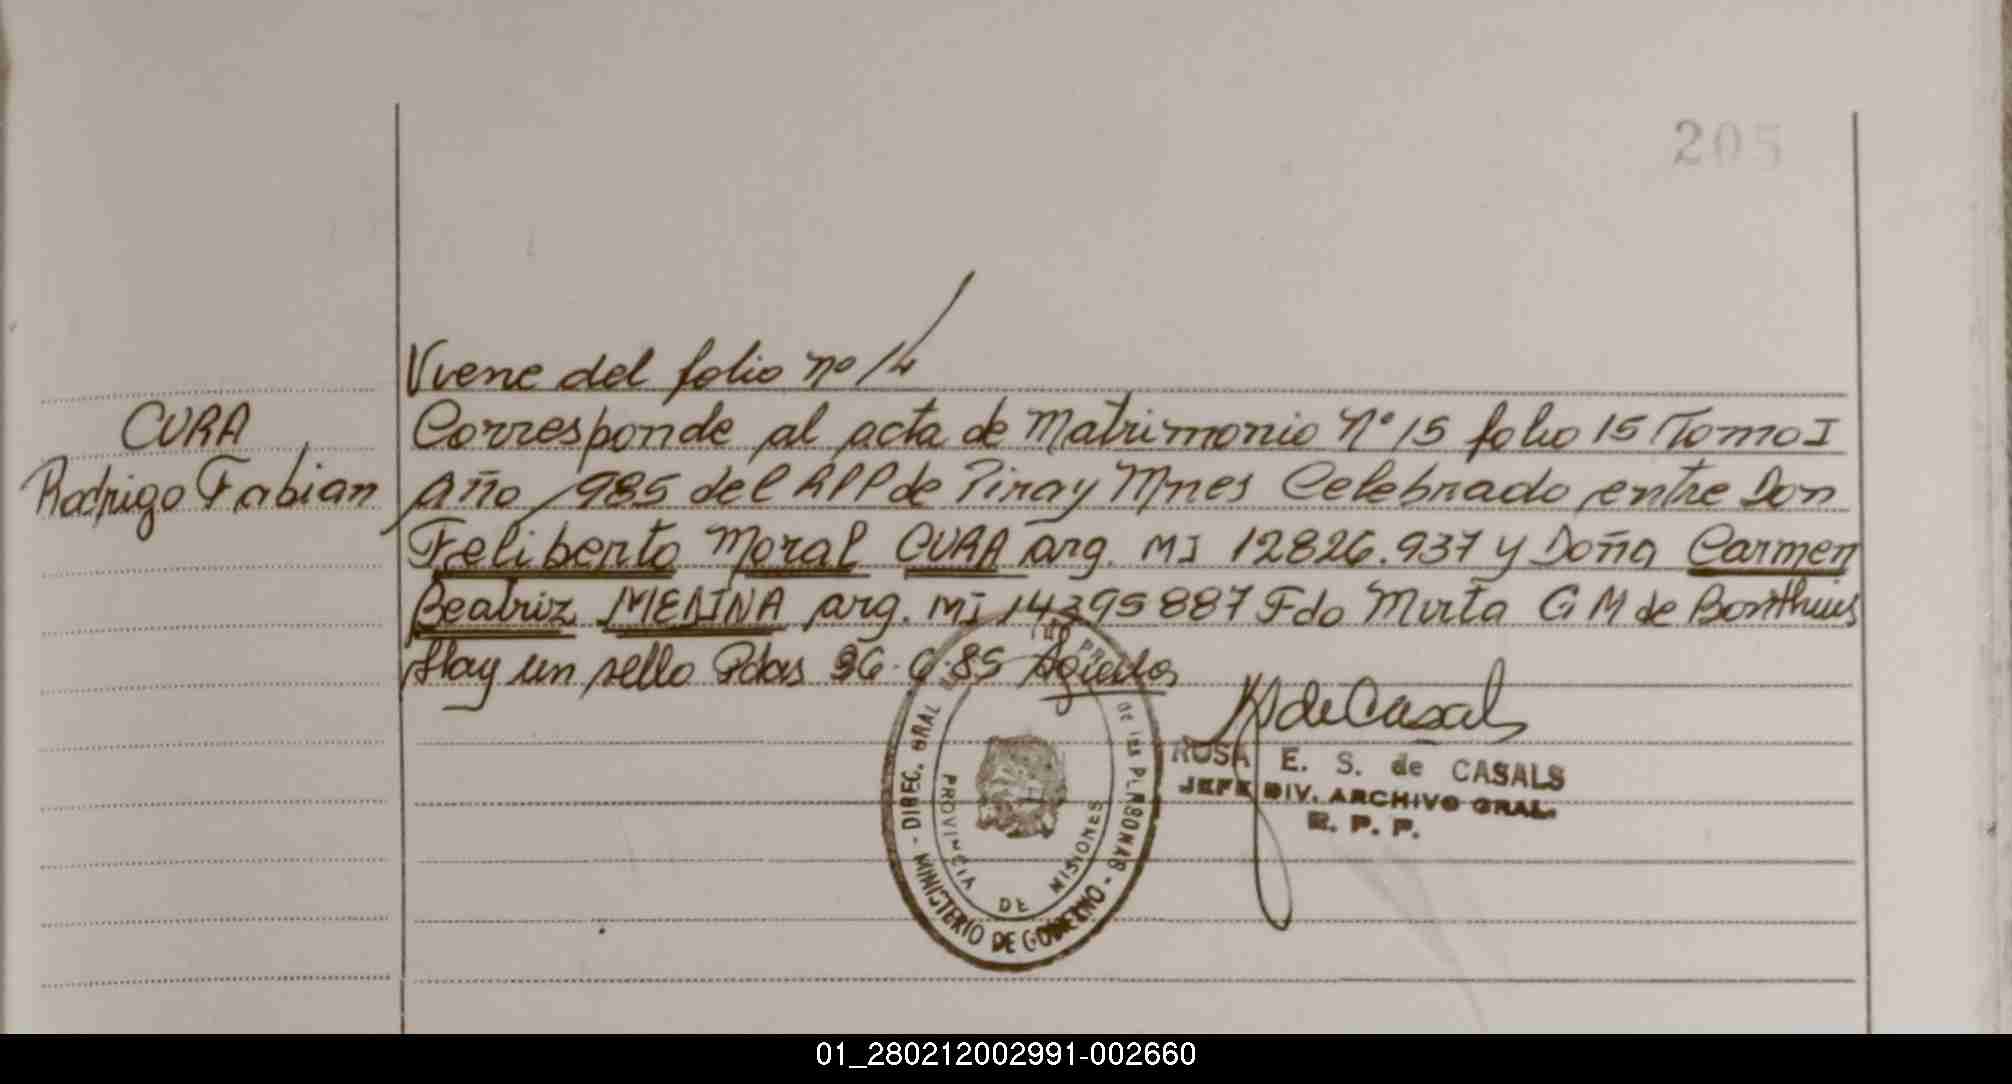 205
Viene del folio nº 14
CURA
Rodrigo Fabian
Corresponde al acta de Matrimonio Nº 15 folio 15 Tomo I
Año 985 del RPP de Piray Mnes Celebrado entre Don
Feliberto Moral CURA arg. MI 12826.937 y Doña Carmen
Beatriz MEDINA arg. MI 14395887 Fdo Mirta G M de
Hay un sello Pdas 85
de Casals
ROSA E. S. de CASALS
JEFE DIV. ARCHIVO GRAL.
R. P. P.
DIREC. GRAL de las PERSONAS - MINISTERIO DE GOBIERNO -
PROVINCIA DE MISIONES
01_280212002991-002660